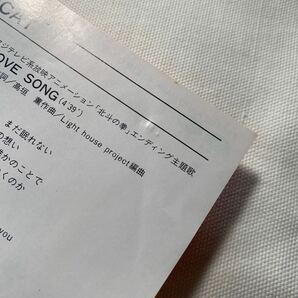 CAT
ジテレビ系放映アニメーション「北斗の拳」エンディング主題歌
OVE SONG (4'39")
詞/高垣 薫作曲/Light house project編曲
まだ眠れない
の想い
かのことで
くのか
you